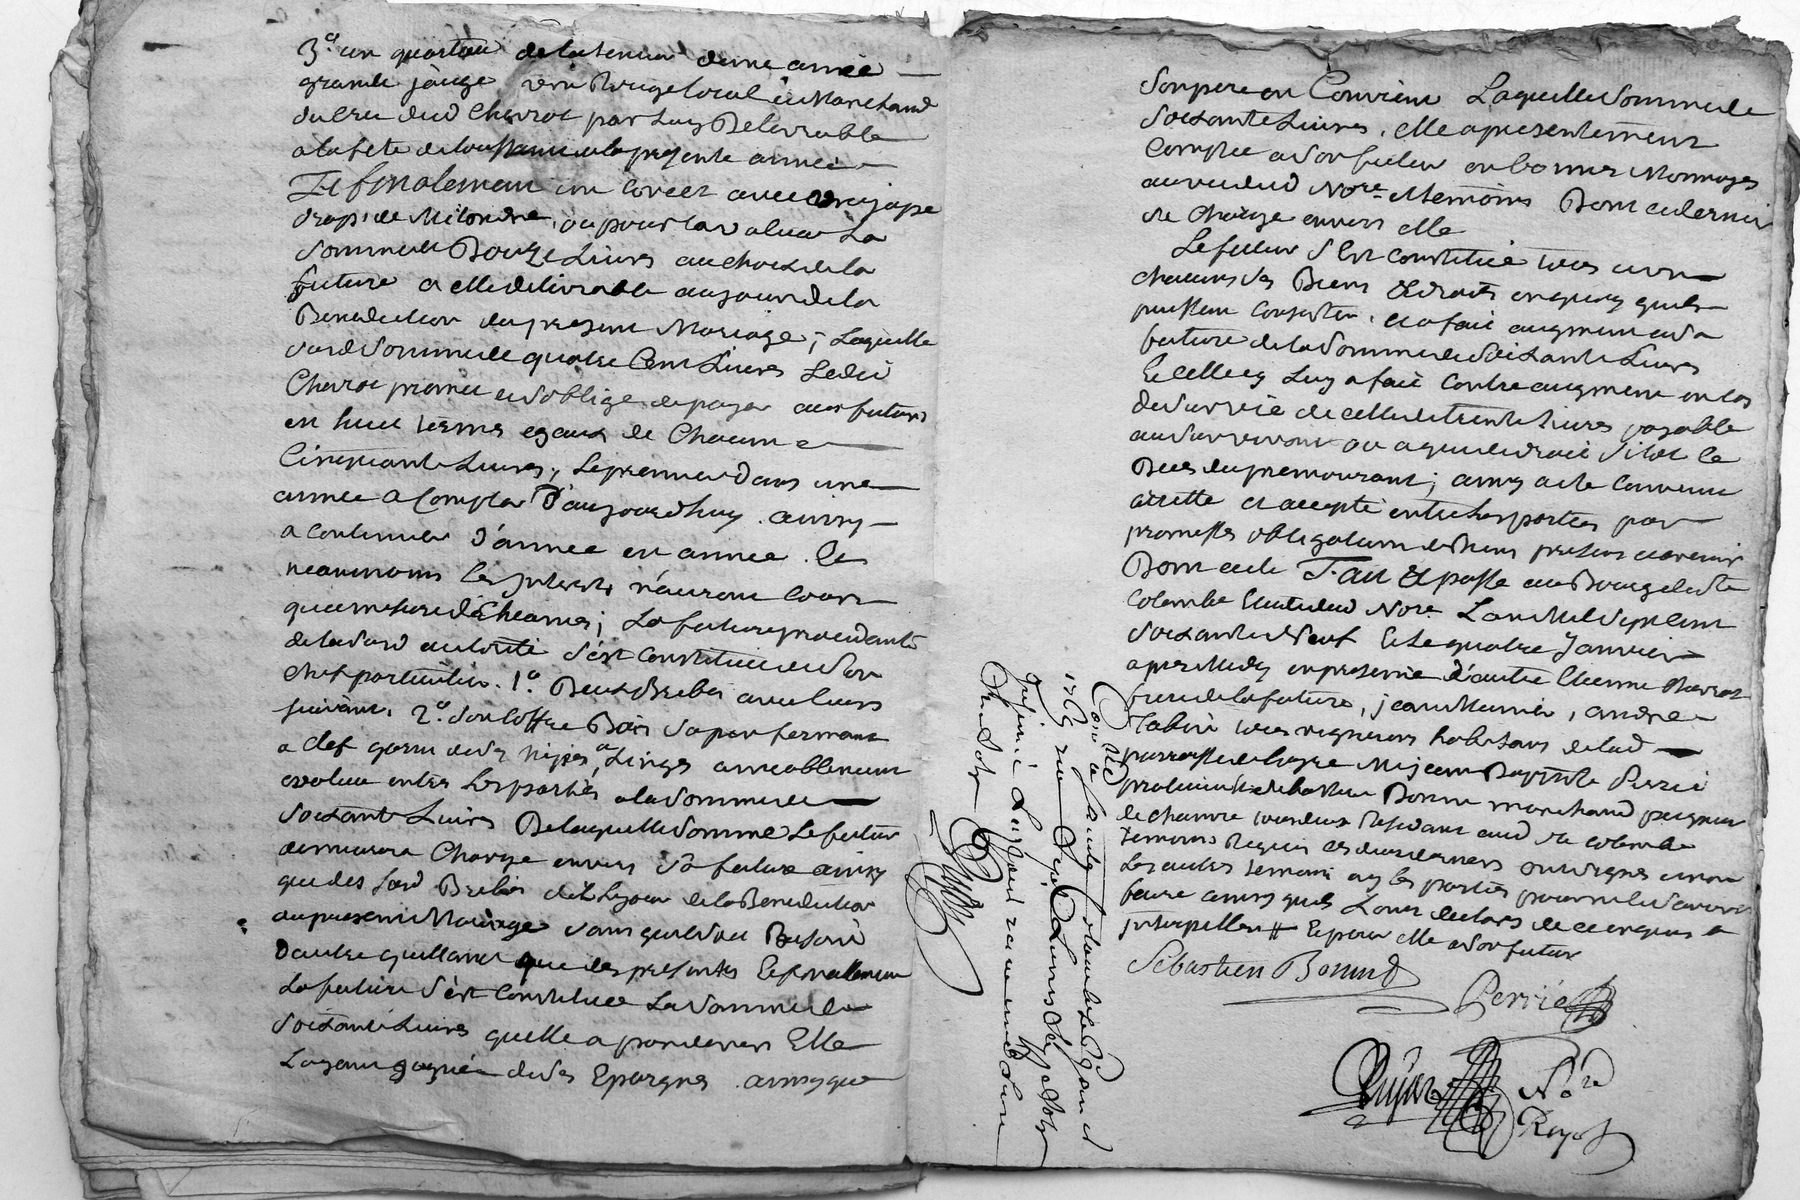 3.° un quartau de la teneur d'une année
grande jauge vin Rouge loial et Marchand
du Cru dud Cherrot par Luy Delivrable
a la fete de toussaint de la presente année
Et finalement un Corcet avec une jupe
drap de , ou pour la valeur La
Somme de Douze Livres au choix de la
future a elle delivrable au jour de la
Benediction du present Mariage ; Laquelle
susd Somme de quatre Cent Livres Ledit
Cherrot promet et s'oblige de payer aux futurs
en huit termes egaux de Chacun
Cinquante Livres, Le premier Dans une
année a Compter D'aujourd'huy ainsy
a continuer d'année en année. Et
neanmoins les Interets n'auront Cours
qu'a mesure d'Echeances ; La future procedante
de la susd autorité s'est Constituée de son
chef particulier. 1.° Deux Brebis avec leurs
suivant. 2.° Son Coffre Bois Sapin fermant
a clef garni de ses Nipes et Linges amiablement
evalué entre Les parties a la Somme de
Soixante Livres De laquelle Somme Le futur
demeurera Chargé envers sa future ainsy
que des susd Brebis dès le jour de la Benediction
du present Mariage sans qu'il soit Besoin
D'autre quittance que des presentes Et finallement
La future s'est Constituée La Somme de
Soixante Livres qu'elle a pardevers Elle
L'ayant gagnée de ses Epargnes ainsy que
son pere en Convient Laquelle Somme de
Soixante Livres, elle a presentement
Comptée a son futur en bonnes Monnoyes
au vu dud No.re et temoins Dont ce dernier
se Charge envers elle
Le futur s'est constitué tous un
chacuns ses Biens et droits en quoy qu'ils
puissent Consister, et a fait augment a sa
future de la Somme de Soixante Livres
Et celle cy Luy a fait Contre augment en cas
de survie de celle de trente Livres payable
au survivant ou a qui de droit sitot le
Deces du premourant ; ainsy a eté Convenu
arretté et accepté entre Les parties par
promesses obligation de Biens presents et avenir
Dont acte Fait et passé au Bourg de Ste
Colombe Etude dud No.re L'an Mil Sept Cent
Soixante et Neuf Et le quatre Janvier
apres Midy en presence d'autre Etienne Cherrot
frere de la future, jean Munier, andré
tous vignerons habitans de lad
parroisse de Me jean Baptiste Perrié
praticien et Sebastien Bonin marchand peigneur
de chanvre tous deux Residant aud Ste Colombe
temoins Requis ces deux derniers ont signés et non
Les autres temoins ny les parties pour ne le savoir
faire ainsy qu'ils L'ont declaré de ce enquis et
interpellés # Et pour elle a son futur
Sebastien Bonin
Perrié
No.re
Royal
Controllé a Ste Colombe Le
1769 reçu Sept Livres Six Sols